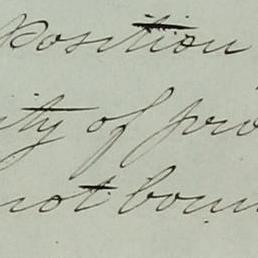 Position
ity of pro
not boun